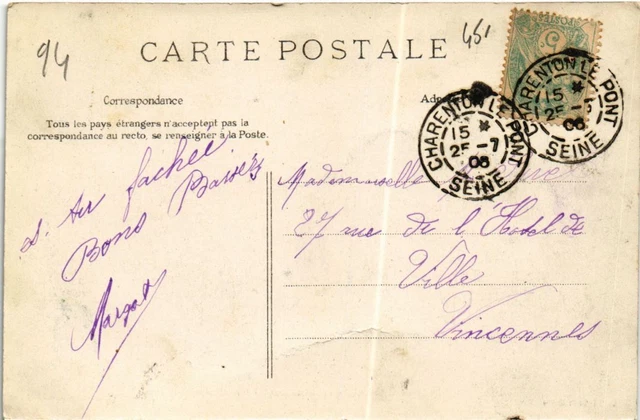 94
CARTE POSTALE
451
Correspondance
Tous les pays étrangers n'acceptent pas la
correspondance au recto, se renseigner à la Poste.
fachée
Bons Baisers
Margot
Mademoiselle
27 rue de l'Hotel de
Ville
Vincennes
CHARENTON LE PONT
15 *
25 -7
06
SEINE
CHARENTON LE PONT
15 *
25 -7
06
SEINE